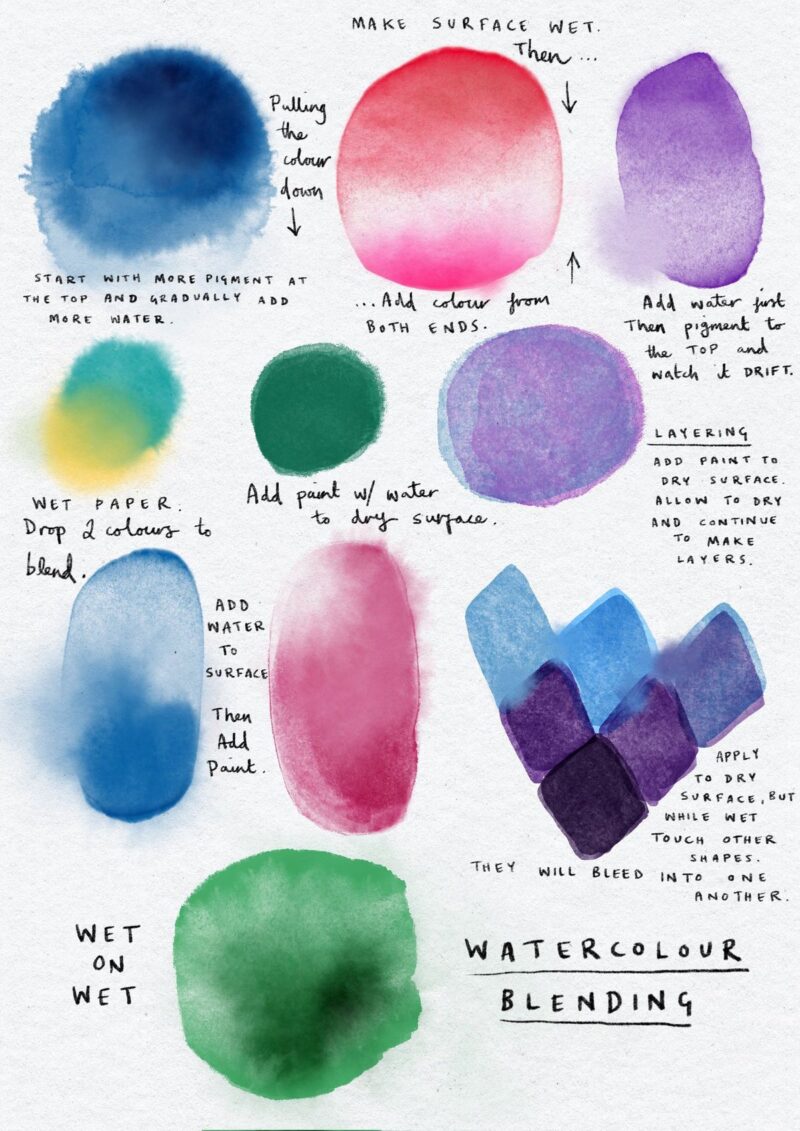 MAKE SURFACE WET.
Then ...
Pulling
the
colour
down
START WITH MORE PIGMENT AT
THE TOP AND GRADUALLY ADD
MORE WATER.
...Add colour from
BOTH ENDS.
Add water first
Then pigment to
the TOP and
watch it DRIFT.
WET PAPER.
Drop 2 colours to
blend.
Add paint w/ water
to dry surface.
LAYERING
ADD PAINT TO
DRY SURFACE.
ALLOW TO DRY
AND CONTINUE
TO MAKE
LAYERS.
ADD
WATER
TO
SURFACE
Then
Add
Paint.
APPLY
TO DRY
SURFACE, BUT
WHILE WET
TOUCH OTHER
SHAPES.
THEY WILL BLEED INTO ONE
ANOTHER.
WET
ON
WET
WATERCOLOUR
BLENDING